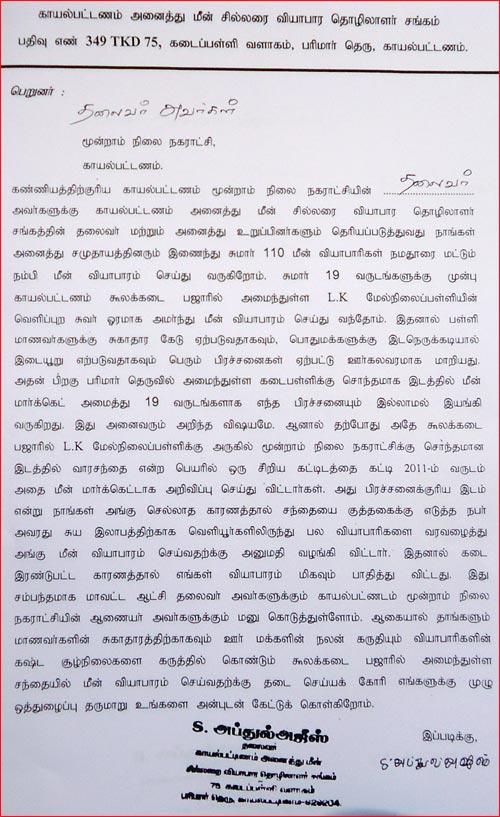 காயல்பட்டணம் அனைத்து மீன் சில்லரை வியாபார தொழிலாளர் சங்கம்
பதிவு எண் 349 TKD 75, கடைப்பள்ளி வளாகம், பரிமார் தெரு, காயல்பட்டணம்.
பெறுனர் :
தலைவர் அவர்கள்
மூன்றாம் நிலை நகராட்சி,
காயல்பட்டணம்.
கண்ணியத்திற்குரிய காயல்பட்டணம் மூன்றாம் நிலை நகராட்சியின் தலைவர்
அவர்களுக்கு காயல்பட்டணம் அனைத்து மீன் சில்லரை வியாபார தொழிலாளர்
சங்கத்தின் தலைவர் மற்றும் அனைத்து உறுப்பினர்களும் தெரியப்படுத்துவது நாங்கள்
அனைத்து சமுதாயத்தினரும் இணைந்து சுமார் 110 மீன் வியாபாரிகள் நமதூரை மட்டும்
நம்பி மீன் வியாபாரம் செய்து வருகிறோம். சுமார் 19 வருடங்களுக்கு முன்பு
காயல்பட்டணம் கூலக்கடை பஜாரில் அமைந்துள்ள L.K மேல்நிலைப்பள்ளியின்
வெளிப்புற சுவர் ஓரமாக அமர்ந்து மீன் வியாபாரம் செய்து வந்தோம். இதனால் பள்ளி
மாணவர்களுக்கு சுகாதார கேடு ஏற்படுவதாகவும், பொதுமக்களுக்கு இடநெருக்கடியால்
இடையூறு எற்படுவதாகவும் பெரும் பிரச்சனைகள் ஏற்பட்டு ஊர்கலவரமாக மாறியது.
அதன் பிறகு பரிமார் தெருவில் அமைந்துள்ள கடைபள்ளிக்கு சொந்தமாக இடத்தில் மீன்
மார்க்கெட் அமைத்து 19 வருடங்களாக எந்த பிரச்சனையும் இல்லாமல் இயங்கி
வருகிறது. இது அனைவரும் அறிந்த விஷயமே. ஆனால் தற்போது அதே கூலக்கடை
பஜாரில் L.K மேல்நிலைப்பள்ளிக்கு அருகில் மூன்றாம் நிலை நகராட்சிக்கு சொந்தமான
இடத்தில் வாரசந்தை என்ற பெயரில் ஒரு சிறிய கட்டிடத்தை கட்டி 2011-ம் வருடம்
அதை மீன் மார்க்கெட்டாக அறிவிப்பு செய்து விட்டார்கள். அது பிரச்சனைக்குரிய இடம்
என்று நாங்கள் அங்கு செல்லாத காரணத்தால் சந்தையை குத்தகைக்கு எடுத்த நபர்
அவரது சுய இலாபத்திற்காக வெளியூர்களிலிருந்து பல வியாபாரிகளை வரவழைத்து
அங்கு மீன் வியாபாரம் செய்வதற்க்கு அனுமதி வழங்கி விட்டார். இதனால் கடை
இரண்டுபட்ட காரணத்தால் எங்கள் வியாபாரம் மிகவும் பாதித்து விட்டது. இது
சம்பந்தமாக மாவட்ட ஆட்சி தலைவர் அவர்களுக்கும் காயல்பட்டணம் மூன்றாம் நிலை
நகராட்சியின் ஆணையர் அவர்களுக்கும் மனு கொடுத்துள்ளோம். ஆகையால் தாங்களும்
மாணவர்களின் சுகாதாரத்திற்காகவும் ஊர் மக்களின் நலன் கருதியும் வியாபாரிகளின்
கஷ்ட சூழ்நிலைகளை கருத்தில் கொண்டும் கூலக்கடை பஜாரில் அமைந்துள்ள
சந்தையில் மீன் வியாபாரம் செய்வதற்க்கு தடை செய்யக் கோரி எங்களுக்கு முழு
ஒத்துழைப்பு தருமாறு உங்களை அன்புடன் கேட்டுக் கொள்கிறோம்.
இப்படிக்கு,
S. அப்துல்அஜீஸ்
தலைவர்
காயல்பட்டிணம் அனைத்து மீன்
சில்லறை வியாபார தொழிலாளர் சங்கம்
75 கடைப்பள்ளி வளாகம்
பரிமார் தெரு, காயல்பட்டிணம்-628204.
S.அப்துல் அஜீஸ்